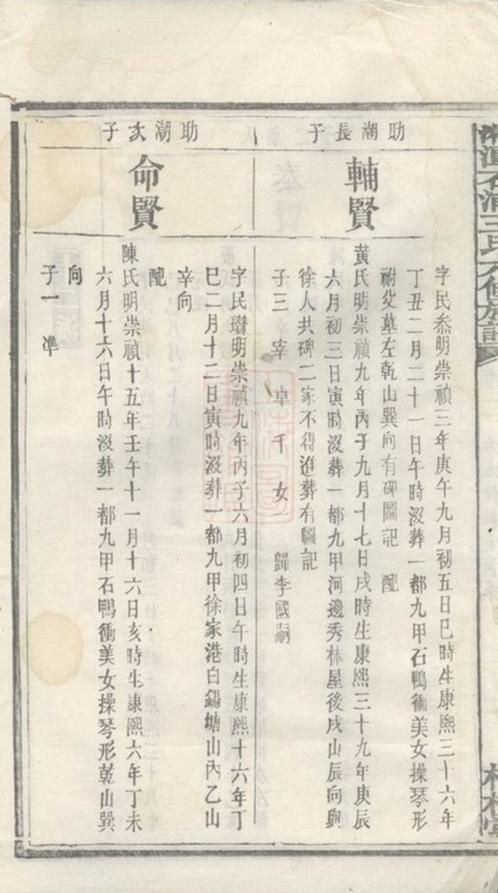 助潮長子
輔賢
字民叅明崇禎三年庚午九月初五日巳時生康熙三十六年
丁丑二月二十一日午時沒葬一都九甲石鴨衝美女操琴形
祔父墓左乾山巽向有碑圖記 配
黄氏明崇禎九年丙子九月十七日戌時生康熙三十九年庚辰
六月初三日寅時沒葬一都九甲河邊秀林屋後戌山辰向與
徐人共碑二家不得進葬有圖記
子三 宰 卓 千 女 歸李國嗣
助潮次子
命賢
字民瓚明崇禎九年丙子六月初四日午時生康熙十六年丁
巳二月十二日寅時沒葬一都九甲徐家港白錫塘山內乙山
辛向
配
陳氏明崇禎十五年壬午十一月十六日亥時生康熙六年丁未
六月十六日午時沒葬一都九甲石鴨衝美女操琴形乾山巽
向
子一 準